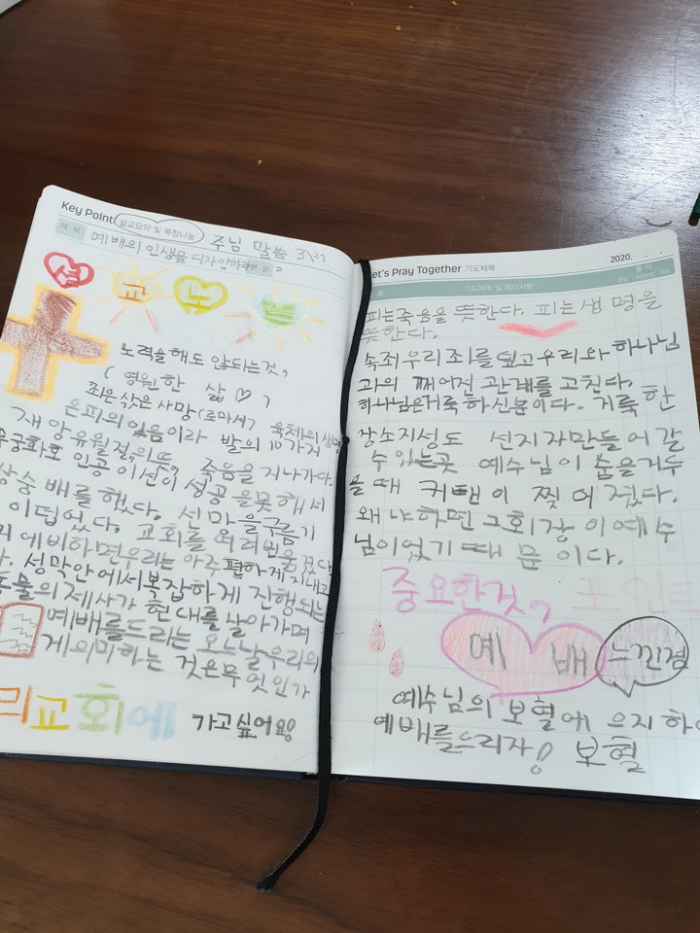 Key Point 설교요약 및 목장나눔 주님 말씀 3\27
제 목 예배의 인생을 디자인하라
설 교 노 트
노력을해도 않되는것,
( 영원한 삶 ♡ ,
죄은 삯은 사망 (로마서) 육체의 생명
은 피의 있음이라 발의 10가지
재앙 유월절,의 뜻, 죽음을 지나가다.
인공 이선이 성공을 못해서
상숭배를 했다. 선 마을 구름기
이 덥었다. 교회를
에 비하면 우리는 아주 편하게 지내고
성막 안에서 복잡하게 진행되는
동물의 제사가 현대를 살아가며
예배를 드리는 오늘날 우리의
게 의미하는 것은 무엇인가
교회에 가고싶어요!
Let's Pray Together 기도제목 2020. . .
기도제목 및 특이사항 출 석
피는죽음을 뜻한다. 피는 생 명을
뜻한다.
속죄 우리 죄를 덮고 우리와 하나님
과의 찌어진 관게를 고친다.
하나님은 거룩 하신분이다. 거룩 한
장소지성도 선지자만 들어 갈
수 있는곳 예수님이 숨을거두
을 때 커탠이 찢어 졌다.
왜 냐하면 그 휘장 이 예수
님이었기 때 문 이다.
중요한것, 포 인트
예 배 느낀점
예수님의 보혈에 으지 하
예배를드리자! 보혈